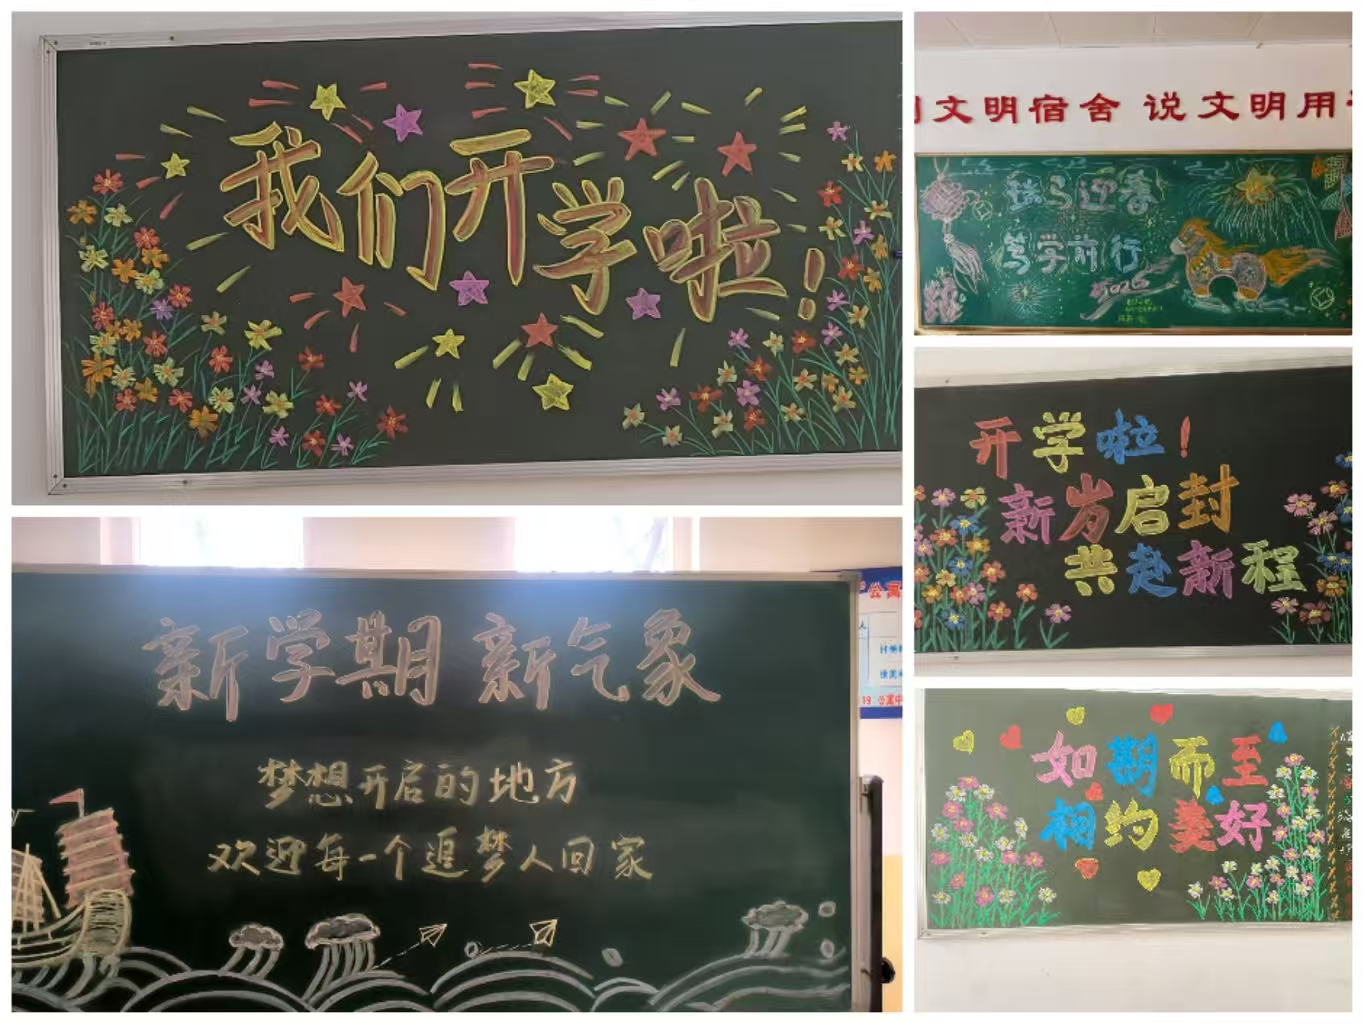 我们开学啦！
文明宿舍 说文明用
瑞马迎春
笃学前行
2026
开学啦！
新岁启封
共赴新程
新学期 新气象
梦想开启的地方
欢迎每一个追梦人回家
公寓
19 公寓中
如期而至
相约美好